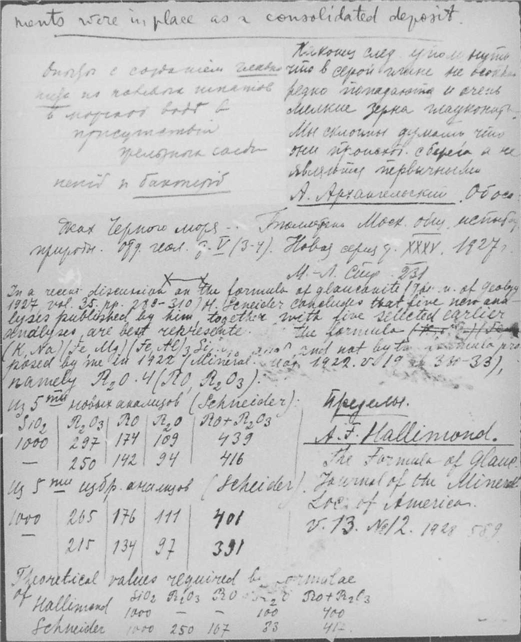 ments were in place as a consolidated deposit.
Опыты с созданием глауко
нита из
в морской воде в
присутствии
железного
и бактерий
Наконец след упомянуть
что в серой глине не особен
редко попадаются и очень
мелкие зерна глауконита.
Мы склонны думать что
они происход. с берега и не
являются первичными
А. Архангельский Об оса
дках Черного моря... Бюллетень Моск. общ. испыт.
природы. Отд. геол. т. V (3-4). Новая серия т. XXXV. 1927 г.
М.-Л. Стр
In a recent discussion on the formula of glauconite (Jour. of geology
1927 vol. 35, pp. 289-310) H. Schneider concludes that five new ana
lyses published by him together with five selected earlier
analyses, are best represente. the formula
(K,Na)(Fe Mg)(Fe,Al)3 Si and not by formula pro
posed by me in 1922 (Mineral. Mag. 1922. v. 19 33),
namely R2O·4(RO, R2O3).
Из 5ти новых анализов (Schneider):
SiO2 R2O3 RO R2O RO+R2O3
1000 297 174 109 439
— 250 142 94 416
Из 5ти избр. анализов (Scheider)
1000 265 176 111 401
215 134 97 391
Пределы.
A. F. Hallimond.
The Formula of Glauc.
Journal of the Mineral
Soc. of America.
V. 13. №12. 1928 589.
Theoretical values required by formulae
of SiO2 R2O3 RO R2O RO+R2O3
Hallimond 1000 — — 100 400
Schneider 1000 250 167 83 417